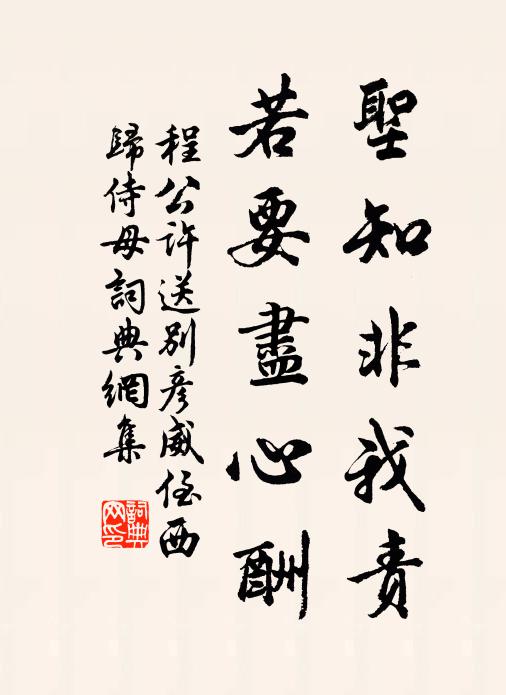 聖知非我責
若要盡心酬
程公許送別彥威侄西
歸侍母詞典網集
詞典网印